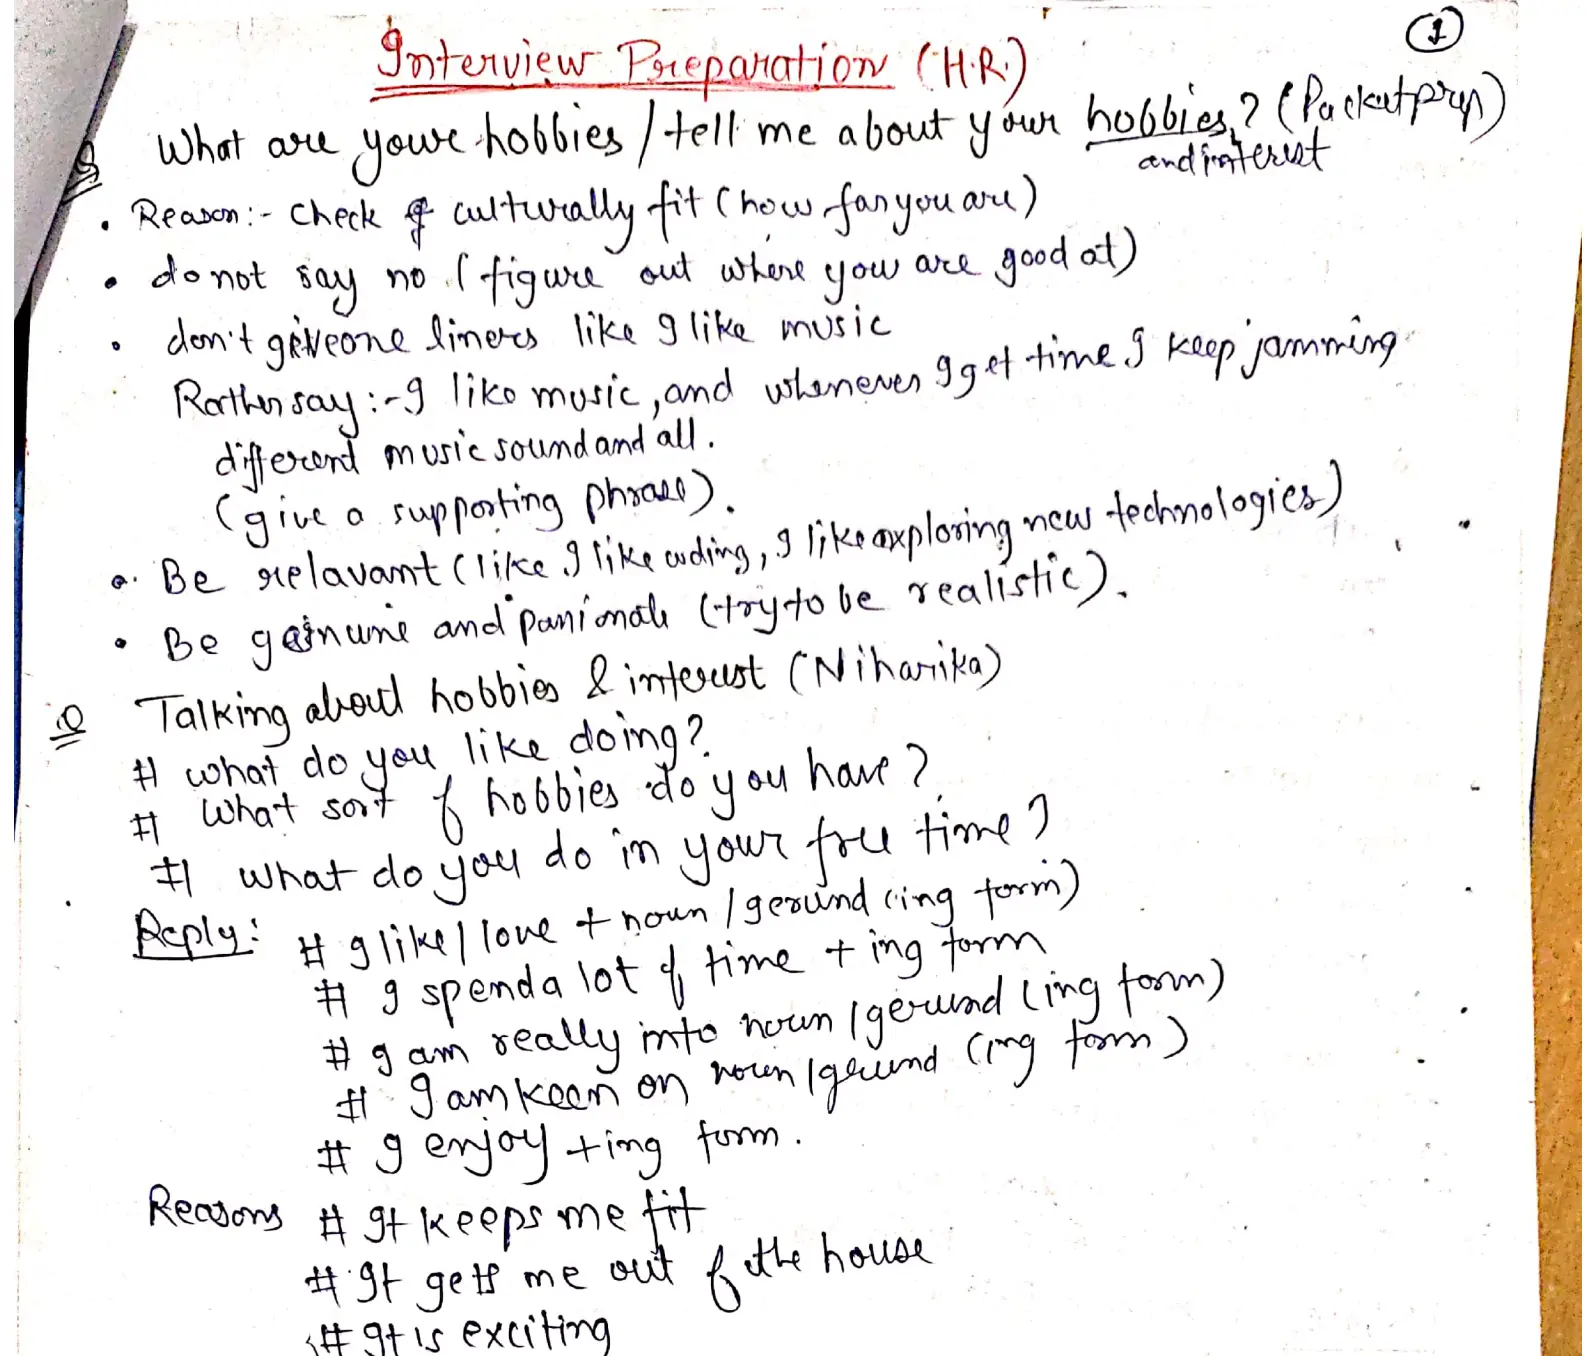 Interview Preparation (H.R.)
1
Q What are youre hobbies / tell me about your hobbies? (Packetprep)
and interest
• Reason:- Check of culturally fit (how far you are)
• do not say no (figure out where you are good at)
• don't give one liners like I like music
Rather say:- I like music, and whenever I get time I keep jamming
different music sound and all.
(give a supporting phrase).
• Be relavant (like I like coding, I like exploring new technologies)
• Be and (try to be realistic).
Q Talking about hobbies & interest (Niharika)
# what do you like doing?
# What sort of hobbies do you have?
# what do you do in your free time?
Reply: # I like / love + noun / gerund (ing form)
# I spend a lot of time + ing form
# I am really into noun / gerund (ing form)
# I am keen on noun / gerund (ing form)
# I enjoy + ing form.
Reasons # It keeps me fit
# It gets me out of the house
# It is exciting